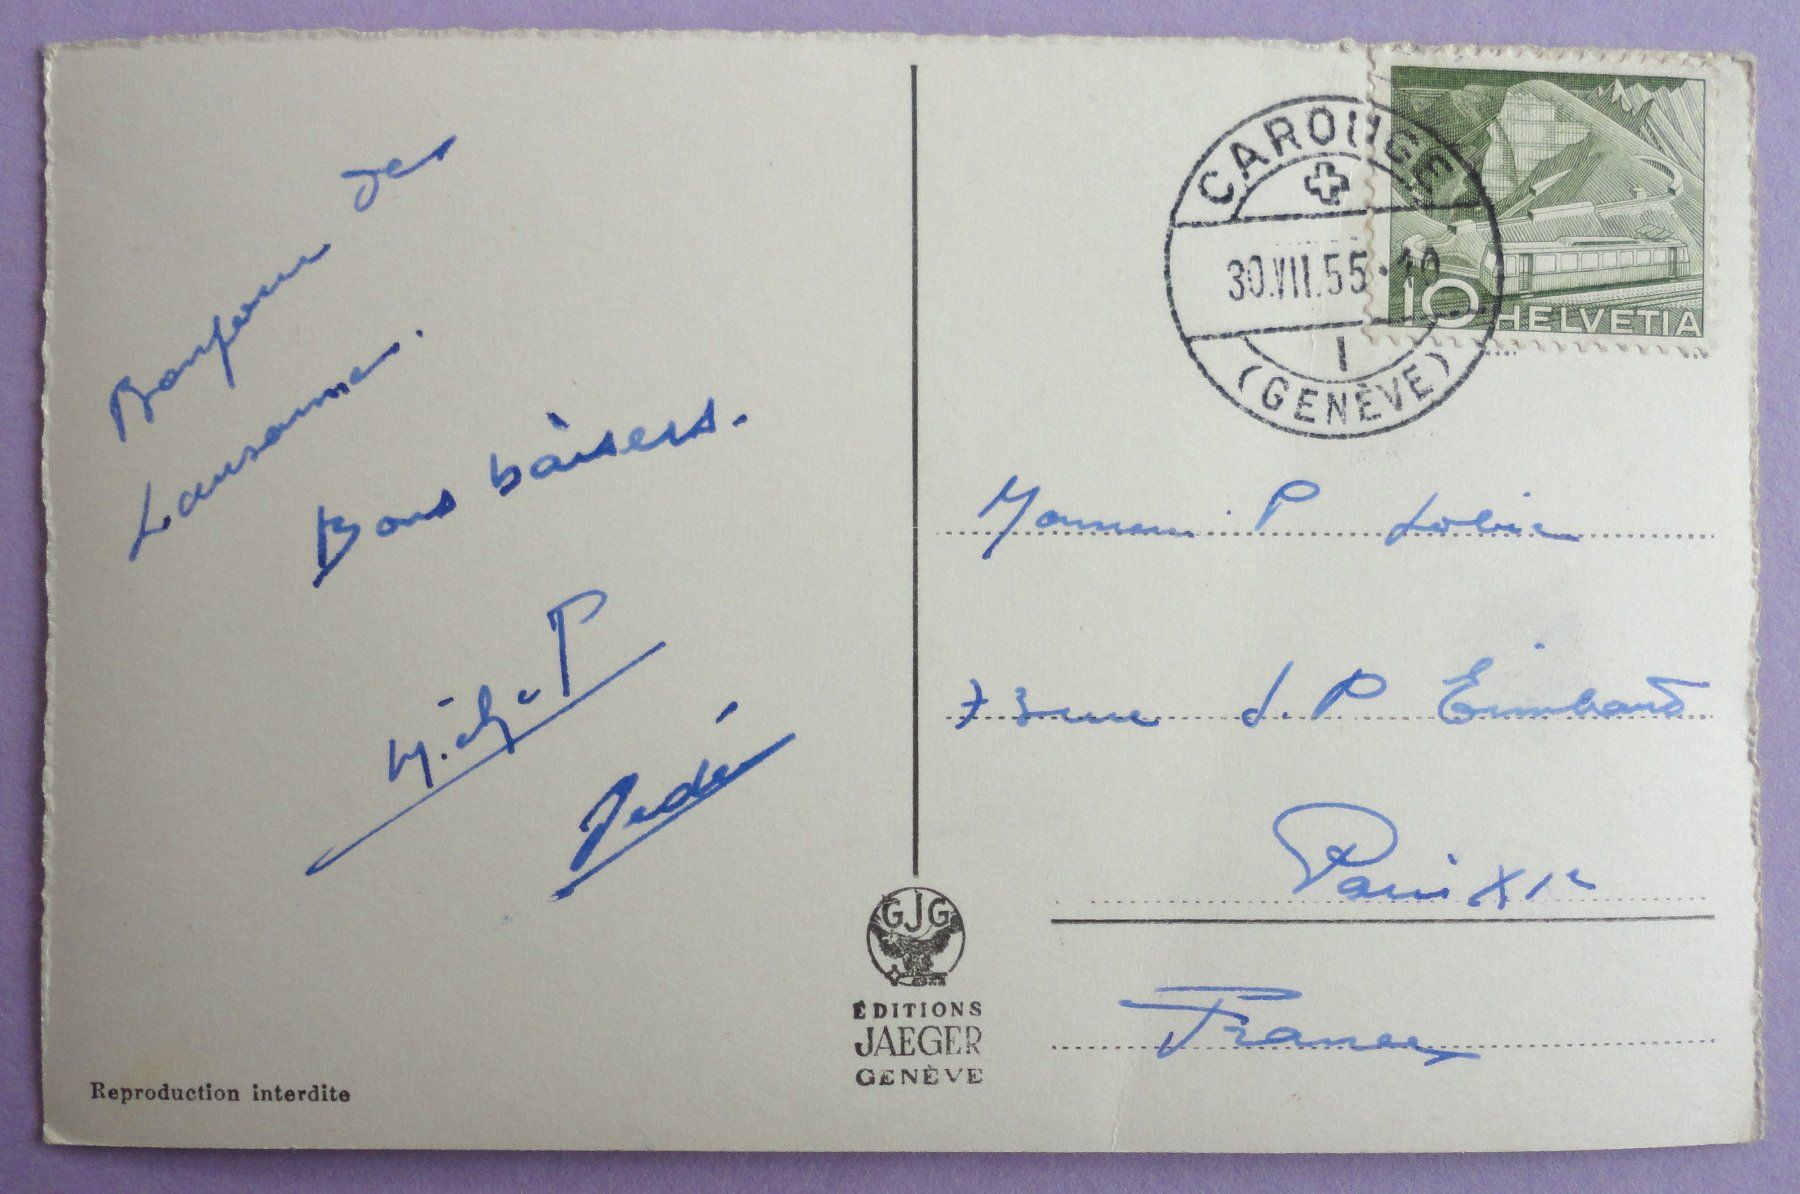 Bonjour de
Lausanne.
Bons baisers.
Dédé
Reproduction interdite
CAROUGE
30.VII.55.10
1
(GENÈVE)
10 HELVETIA
Monsieur P
73 rue J.P Timbaud
Paris XIe
France
GJG
ÉDITIONS
JAEGER
GENÈVE